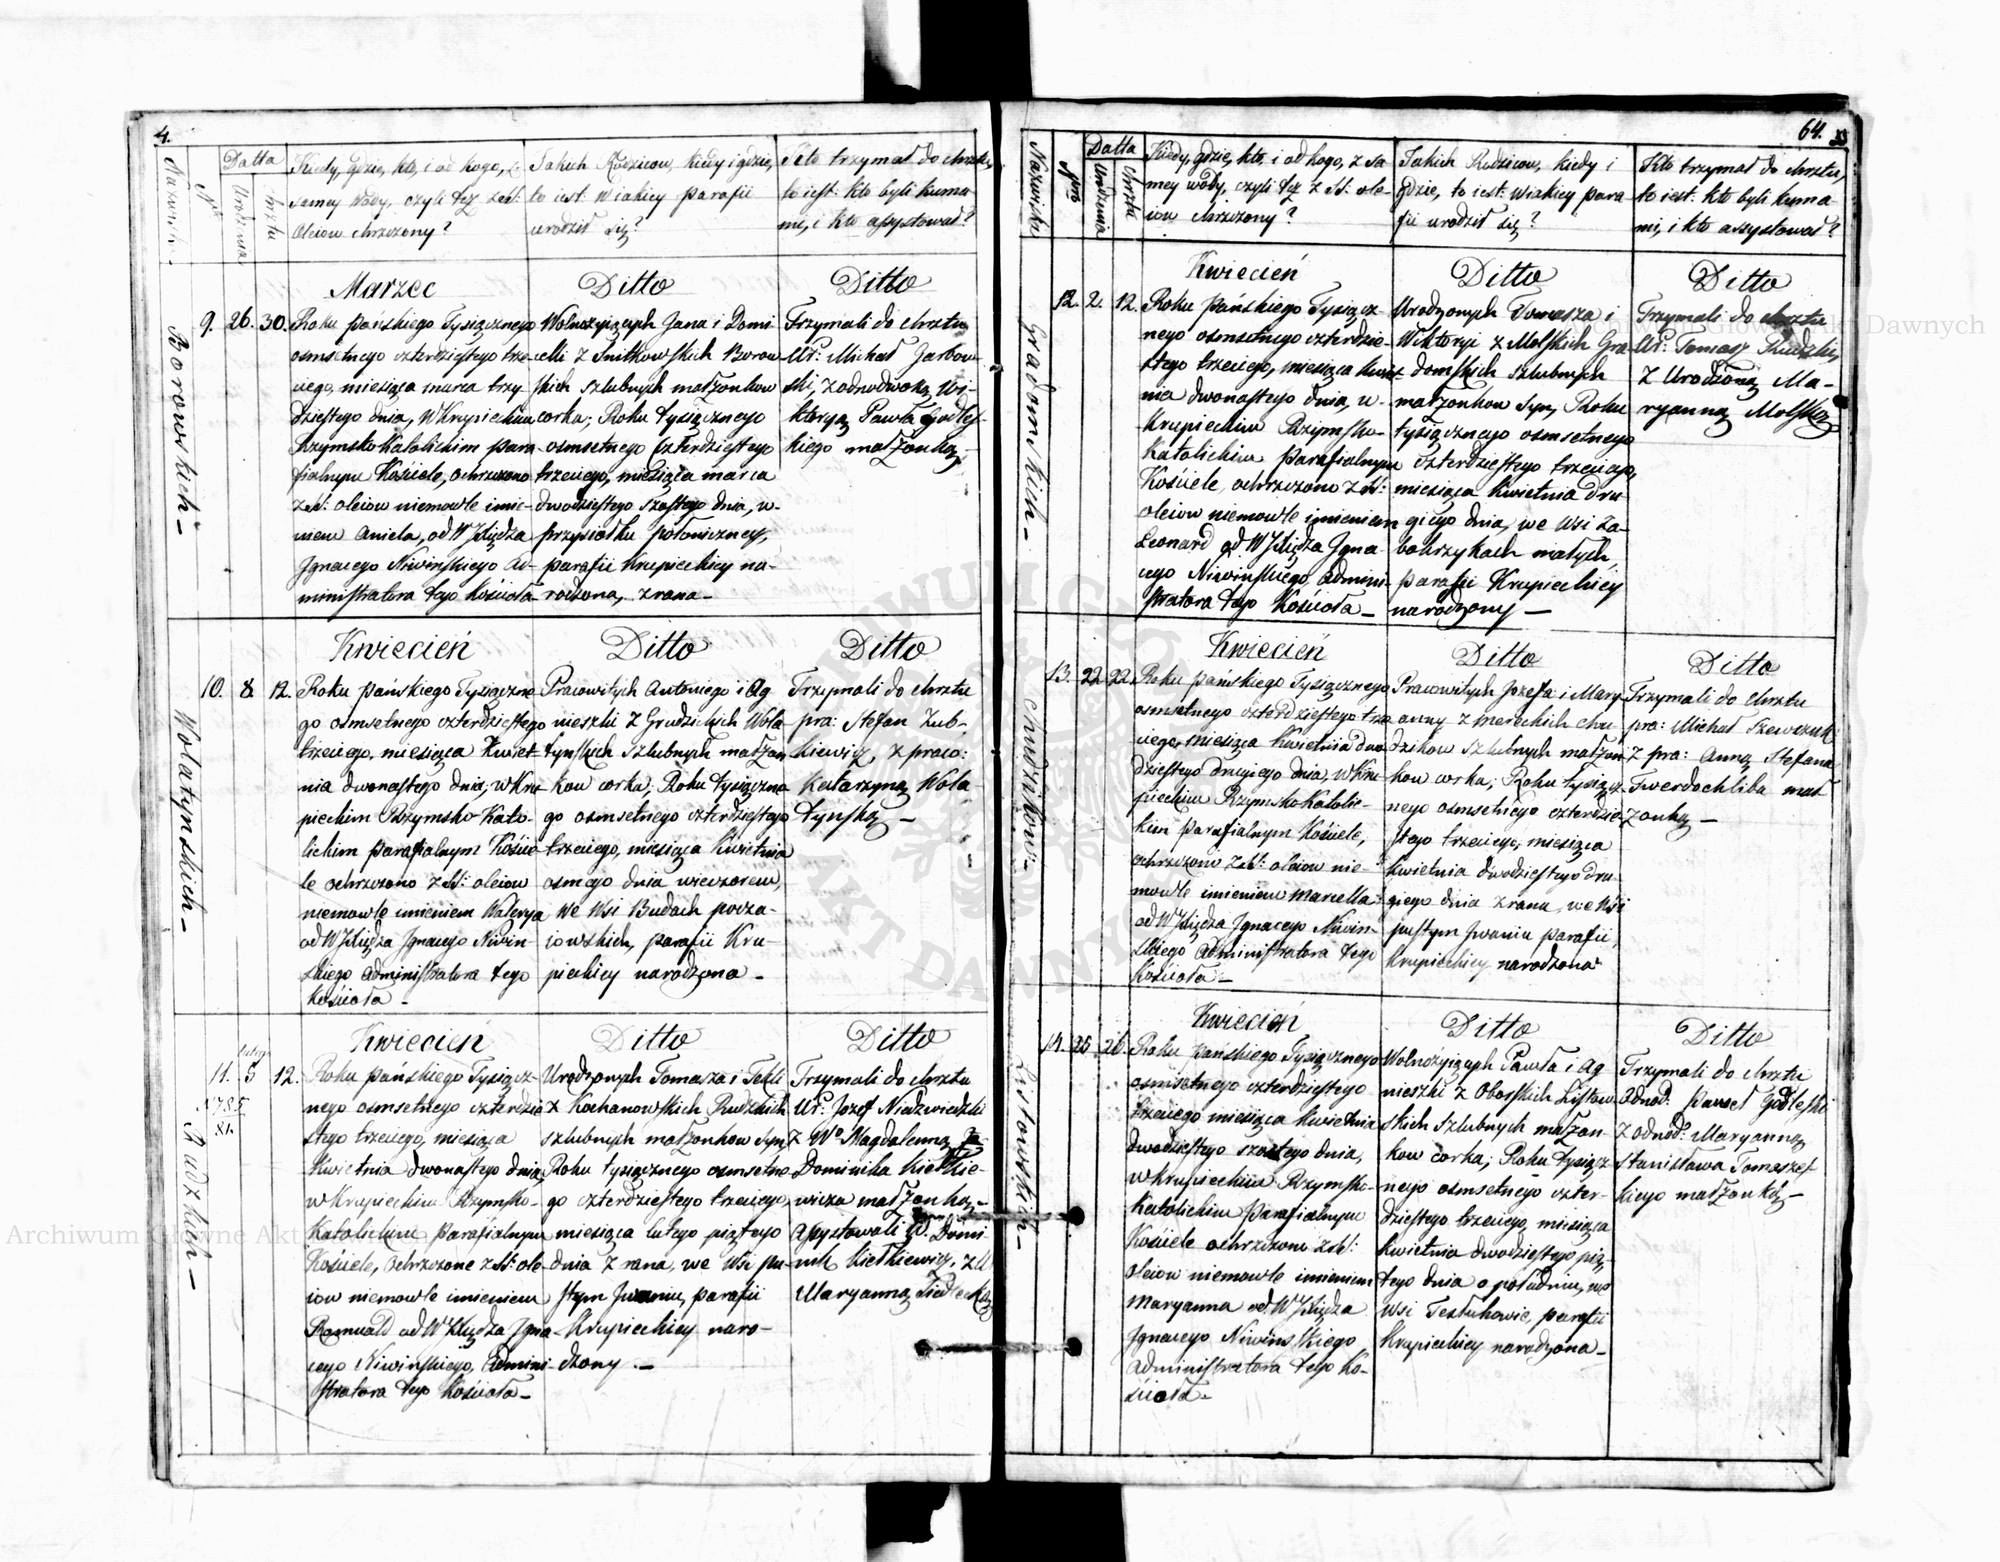 4.
Nazwisko
Nr
Datta
Urodzenia
Chrztu
Kiedy, gdzie, kto, i od kogo, z
samey wody, czyli tez z SS:
oleiow chrzczony?
Jakich Rodzicow, kiedy i gdzie,
to iest: w iakiey parafii
urodził się?
Kto trzymał do chrztu,
to iest: kto byli kuma
mi, i kto assystował?
Borowskich
9. 26. 30.
Marzec
Roku Pańskiego Tysiącznego
osmsetnego czterdziestego trze
ciego, miesiąca marca trzy
dziestego dnia, w Krupieckim
Rzymsko Katolickim para-
fialnym Kościele, ochrzczono
z SS: oleiow niemowle imie-
niem Aniela, od W Xiędza
Jgnacego Niwińskiego Ad-
ministratora tego Kościoła
Ditto
Wolnożyiących Jana i Domi
celli z Snitkowskich Borow
skich szlubnych małżonkow
corka; Roku tysiącznego
osmsetnego czterdziestego
trzeciego, miesiąca marca
dwodziestego szostego dnia, w
przysiołku połoniczney,
parafii Krupieckiey na-
rodzona, z rana_
Ditto
Trzymali do chrztu
Ur: Michał Jarbow-
ski, z odnodworką Wi-
ktoryą Pawła Godlew-
skiego małżonką_
Wołatynskich
10. 8 12.
Kwiecień
Roku Pańskiego Tysiączne
go osmsetnego czterdziestego
trzeciego, miesiąca Kwiet-
nia dwonastego dnia, w Kru
pieckim Rzymsko-Kato-
lickim parafialnym Koście
le ochrzczono z SS: oleiow
niemowle imieniem Waleryja
od W Xiędza Jgnacego Niwin-
skiego Administratora tego
Kościoła_
Ditto
Pracowitych Antoniego i Ag
nieszki z Grudzickich Woła
tynskich szlubnych małżon
kow corka; Roku tysiączne
go osmsetnego czterdziestego
trzeciego, miesiąca Kwietnia
osmego dnia wieczorem,
we Wsi Budach poczа-
iowskich, parafii Kru-
pieckiey narodzona_
Ditto
Trzymali do chrztu
pra: Stefan Zub-
kiewicz, z praco:
Katarzyną Woła-
tynską_
Rudzkich
lutego
11. 5 12.
N 785
81.
Kwiecień
Roku Pańskiego Tysiącz-
nego osmsetnego czterdzie
stego trzeciego, miesiąca
Kwietnia dwonastego dnia
w Krupieckim Rzymsko-
Katolickim parafialnym
Kościele, ochrzczono z SS: ole-
iow niemowle imieniem
Romuald od W Xiędza Jgna
cego Niwińskiego, Admini-
stratora tego Kościoła_
Ditto
Urodzonych Tomasza i Tekli
z Kochanowskich Rudzkich
szlubnych małżonkow syn
Roku tysiącznego osmsetne
go czterdziestego trzeciego,
miesiąca lutego piątego
dnia z rana, we Wsi pu-
stym Jwaniu, parafii
Krupieckiey naro-
dzony._
Ditto
Trzymali do chrztu
Ur: Jozef Niedzwiedzki
z Wo Magdalenną
Dominika Kiełkie-
wicza małżonką_
Assystowali W. Domi
nik Kiełkiewicz, z U
Maryanną Siedlecką
64.
Nazwisko
Nro
Datta
Urodzenia
Chrztu
Kiedy, gdzie, kto, i od kogo, z sa
mey wody, czyli tez z SS: ole-
iow chrzczony?
Jakich Rodzicow, kiedy i
gdzie, to iest: w iakiey para
fii urodził się?
Kto trzymał do chrztu,
to iest: kto byli kuma-
mi, i kto assystował?
Gradomskich
12. 2. 12.
Kwiecień
Roku Pańskiego Tysiącz-
nego osmsetnego czterdzie-
stego trzeciego, miesiąca kwiet-
nia dwonastego dnia, w
Krupieckim Rzymsko-
Katolickim parafialnym
Kościele, ochrzczono z SS:
oleiow niemowle imieniem
Leonard od W Xiędza Jgna-
cego Niwińskiego, Admini-
stratora tego Kościoła_
Ditto
Urodzonych Tomasza i
Wiktoryi z Molskich Gra-
domskich szlubnych
małżonkow syn, Roku
tysiącznego osmsetnego
czterdziestego trzeciego,
miesiąca Kwietnia dru-
giego dnia, we Wsi Za-
bokrzykach małych,
parafii Krupieckiey
narodzony_
Ditto
Trzymali do chrztu
Ur: Tomasz Rudzki,
z Urodzoną Ma-
ryanną Molską
Chudzikow
13. 22 22.
Kwiecień
Roku Pańskiego Tysiącznego
osmsetnego czterdziestego trze
ciego, miesiąca Kwietnia dwo
dziestego drugiego dnia, w Kru
pieckim Rzymsko Katolic-
kim Parafialnym Kościele,
ochrzczono z SS: oleiow nie-
mowle imieniem Marcella
od W Xiędza Jgnacego Niwin-
skiego Administratora tego
Kościoła_
Ditto
Pracowitych Jozefa i Mary
anny z Mereckich Chu
dzikow szlubnych małżon
kow corka; Roku tysiącz
nego osmsetnego czterdzie
stego trzeciego, miesiąca
Kwietnia dwodziestego dru-
giego dnia z rana, we Wsi
pustym Jwaniu parafii
Krupieckiey narodzona
Ditto
Trzymali do chrztu
pra: Michał Szewczuk
z pra: Anną Stefana
Twerdochliba mał
żonką_
Listowskich
14. 25. 26.
Kwiecień
Roku Pańskiego Tysiącznego
osmsetnego czterdziestego
trzeciego miesiąca Kwietnia
dwodziestego szostego dnia,
w Krupieckim Rzymsko-
Katolickim Parafialnym
Kościele ochrzczono z SS:
oleiow niemowle imieniem
Maryanna od W Xiędza
Jgnacego Niwinskiego
Administratora tego Ko-
ścioła_
Ditto
Wolnożyiących Pawła i Ag
nieszki z Oborskich Listow
skich szlubnych małżon-
kow corka; Roku tysiącz
nego osmsetnego czter-
dziestego trzeciego, miesiąca
kwietnia dwodziestego pią-
tego dnia o południu, we
Wsi Testuhowie, parafii
Krupieckiey narodzona_
Ditto
Trzymali do chrztu
Odnod: Paweł Godlewski
z odnod: Maryanną
Stanisława Tomaszef
skiego małżonką_
Archiwum Główne Akt Dawnych
Archiwum Główne Akt Dawnych
ARCHIWUM GŁÓWNE AKT DAWNYCH